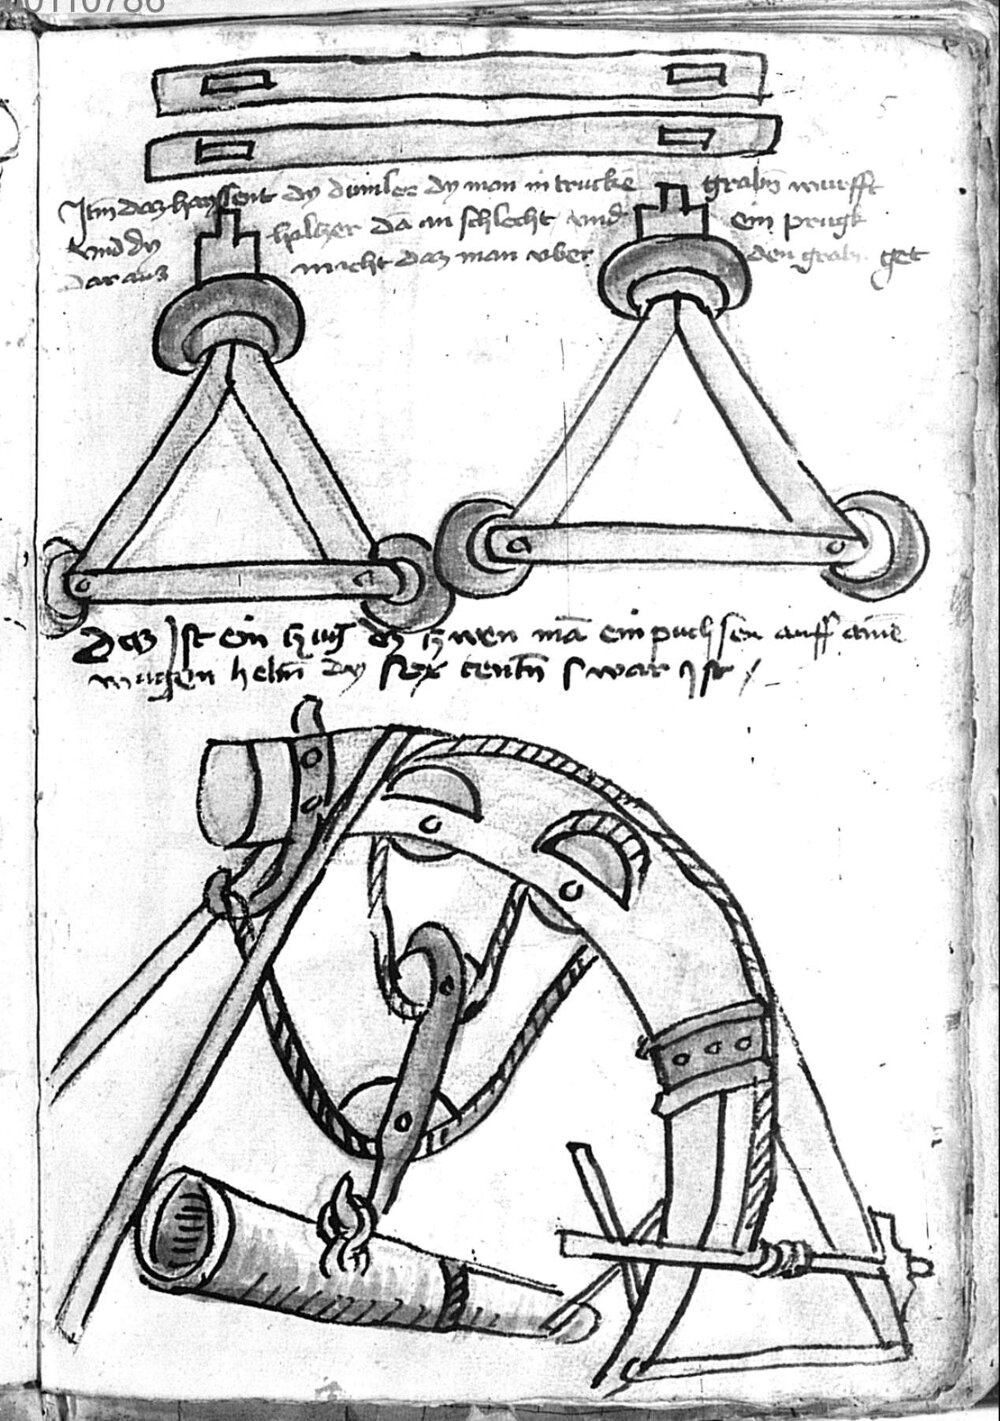 0110786
Itm daz hayssent dy dumler dy man in trucke grabn wurfft
vnd dy holczer da an schlecht vnd ein prugk
dar aus macht daz man vber den grabn get
Daz Jst ein zug do zwen mã ein puchsen auff aine
wagen hebn dy sex centn swar ist /